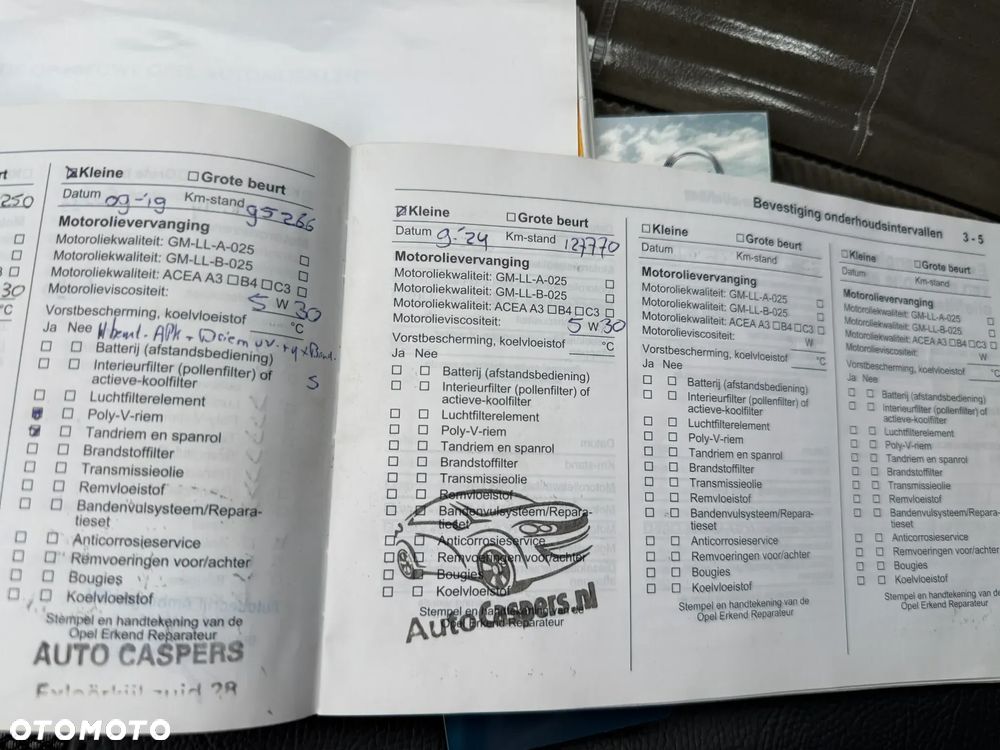 ☒Kleine ☐Grote beurt
Datum 09-'19 Km-stand 95266
Motorolievervanging
Motoroliekwaliteit: GM-LL-A-025 ☐
Motoroliekwaliteit: GM-LL-B-025 ☐
Motoroliekwaliteit: ACEA A3 ☐B4 ☐C3 ☐
Motorolieviscositeit: 5 W 30
Vorstbescherming, koelvloeistof °C
Ja Nee
☐ ☐ Batterij (afstandsbediening)
☐ ☐ Interieurfilter (pollenfilter) of
actieve-koolfilter
☐ ☐ Luchtfilterelement
☒ ☐ Poly-V-riem
☒ ☐ Tandriem en spanrol
☐ ☐ Brandstoffilter
☐ ☐ Transmissieolie
☐ ☐ Remvloeistof
☐ ☐ Bandenvulsysteem/Repara-
tieset
☐ ☐ Anticorrosieservice
☐ ☐ Remvoeringen voor/achter
☐ ☐ Bougies
☐ ☐ Koelvloeistof
Stempel en handtekening van de
Opel Erkend Reparateur
AUTO CASPERS
250
30
°C
Bevestiging onderhoudsintervallen 3 - 5
☒Kleine ☐Grote beurt
Datum 9-'24 Km-stand 127770
Motorolievervanging
Motoroliekwaliteit: GM-LL-A-025 ☐
Motoroliekwaliteit: GM-LL-B-025 ☐
Motoroliekwaliteit: ACEA A3 ☐B4 ☐C3 ☐
Motorolieviscositeit: 5 W 30
Vorstbescherming, koelvloeistof °C
Ja Nee
☐ ☐ Batterij (afstandsbediening)
☐ ☐ Interieurfilter (pollenfilter) of
actieve-koolfilter
☐ ☐ Luchtfilterelement
☐ ☐ Poly-V-riem
☐ ☐ Tandriem en spanrol
☐ ☐ Brandstoffilter
☐ ☐ Transmissieolie
☐ ☐ Remvloeistof
☐ ☐ Bandenvulsysteem/Repara-
tieset
☐ ☐ Anticorrosieservice
☐ ☐ Remvoeringen voor/achter
☐ ☐ Bougies
☐ ☐ Koelvloeistof
Stempel en handtekening van de
Opel Erkend Reparateur
Autocaspers.nl
☐Kleine ☐Grote beurt
Datum Km-stand
Motorolievervanging
Motoroliekwaliteit: GM-LL-A-025 ☐
Motoroliekwaliteit: GM-LL-B-025 ☐
Motoroliekwaliteit: ACEA A3 ☐B4 ☐C3 ☐
Motorolieviscositeit: W
Vorstbescherming, koelvloeistof °C
Ja Nee
☐ ☐ Batterij (afstandsbediening)
☐ ☐ Interieurfilter (pollenfilter) of
actieve-koolfilter
☐ ☐ Luchtfilterelement
☐ ☐ Poly-V-riem
☐ ☐ Tandriem en spanrol
☐ ☐ Brandstoffilter
☐ ☐ Transmissieolie
☐ ☐ Remvloeistof
☐ ☐ Bandenvulsysteem/Repara-
tieset
☐ ☐ Anticorrosieservice
☐ ☐ Remvoeringen voor/achter
☐ ☐ Bougies
☐ ☐ Koelvloeistof
Stempel en handtekening van de
Opel Erkend Reparateur
☐Kleine ☐Grote beurt
Datum Km-stand
Motorolievervanging
Motoroliekwaliteit: GM-LL-A-025 ☐
Motoroliekwaliteit: GM-LL-B-025 ☐
Motoroliekwaliteit: ACEA A3 ☐B4 ☐C3 ☐
Motorolieviscositeit: W
Vorstbescherming, koelvloeistof °C
Ja Nee
☐ ☐ Batterij (afstandsbediening)
☐ ☐ Interieurfilter (pollenfilter) of
actieve-koolfilter
☐ ☐ Luchtfilterelement
☐ ☐ Poly-V-riem
☐ ☐ Tandriem en spanrol
☐ ☐ Brandstoffilter
☐ ☐ Transmissieolie
☐ ☐ Remvloeistof
☐ ☐ Bandenvulsysteem/Repara-
tieset
☐ ☐ Anticorrosieservice
☐ ☐ Remvoeringen voor/achter
☐ ☐ Bougies
☐ ☐ Koelvloeistof
Stempel en handtekening van de
Opel Erkend Reparateur
OTOMOTO